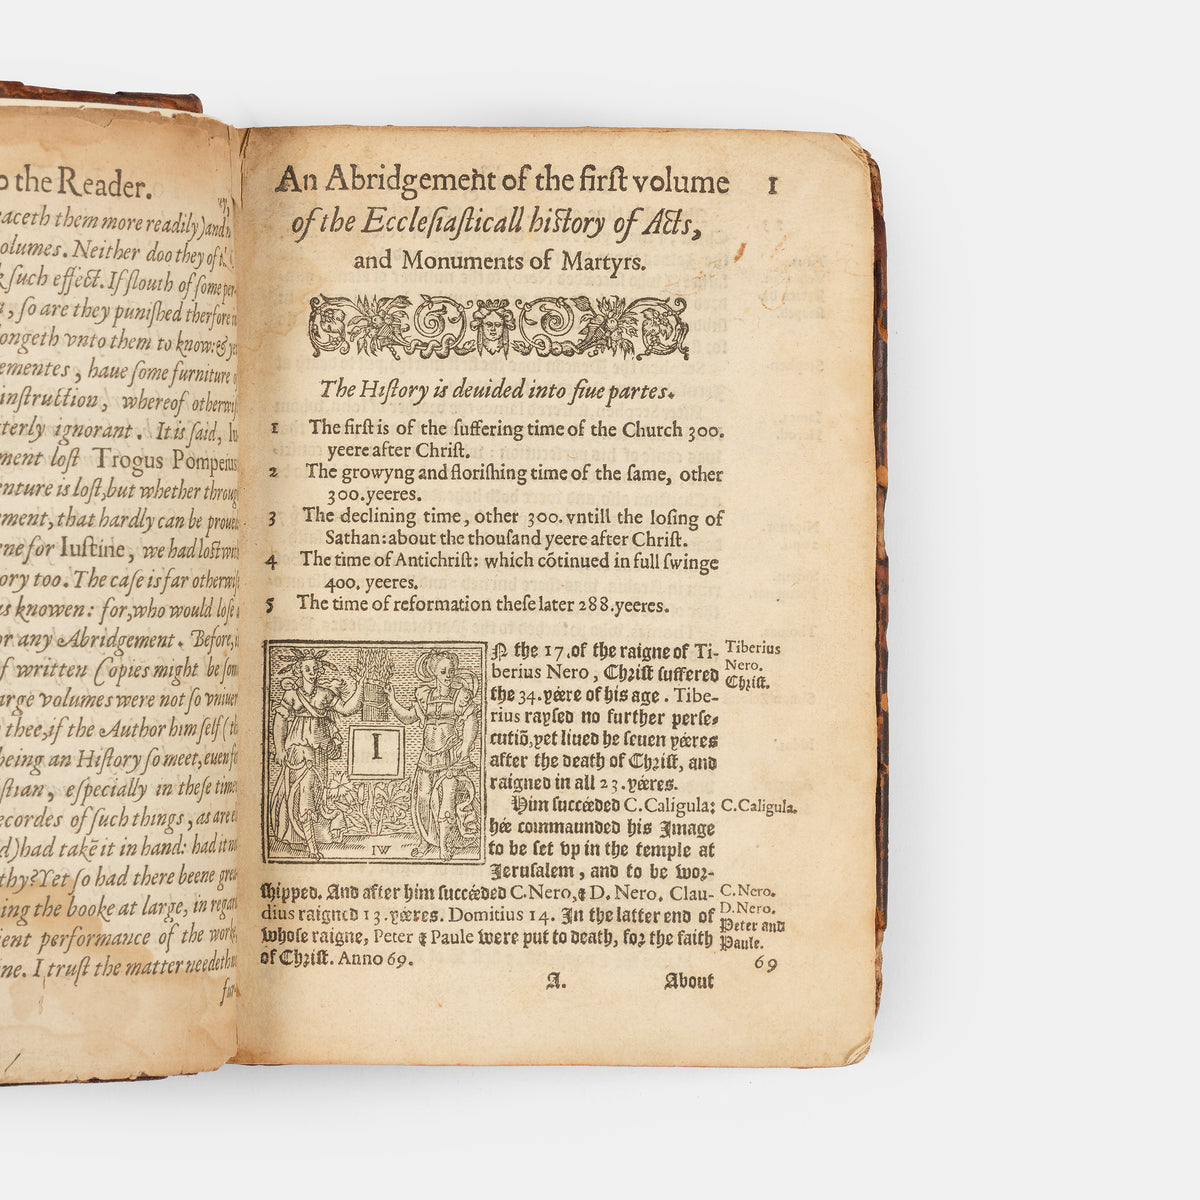 to the Reader.
aceth them more readily) and
olumes. Neither doo they of
such effect. If ſlouth of ſome per-
, ſo are they puniſhed therfore
ongeth vnto them to know: & yet
ementes, haue ſome furniture
inſtruction, whereof otherwiſ
tterly ignorant. It is ſaid, Iu-
ment loſt Trogus Pompeius
enture is loſt, but whether throug
ment, that hardly can be proue
ene for Iuſtine, we had loſt
ory too. The caſe is far otherwiſ
is knowen: for, who would loſe
or any Abridgement. Before,
f written Copies might be ſom
arge volumes were not ſo vniuer
thee, if the Author him ſelf (
being an Hiſtory ſo meet, euen
ſtian, eſpecially in theſe time
ecordes of ſuch things, as are
d) had takē it in hand: had it
thy? Yet ſo had there beene gre
ing the booke at large, in regar
ient performance of the work
ine. I truſt the matter needeth
fur-
An Abridgement of the firſt volume 1
of the Eccleſiaſticall hiſtory of Acts,
and Monuments of Martyrs.
The Hiſtory is deuided into fiue partes.
1 The firſt is of the ſuffering time of the Church 300.
yeere after Chriſt.
2 The growyng and floriſhing time of the ſame, other
300. yeeres.
3 The declining time, other 300. vntill the loſing of
Sathan: about the thouſand yeere after Chriſt.
4 The time of Antichriſt: which cõtinued in full ſwinge
400. yeeres.
5 The time of reformation theſe later 288. yeeres.
I
IW
N the 17. of the raigne of Ti- Tiberius
Nero.
berius Nero, Chriſt ſuffered Chriſt.
the 34. yéere of his age. Tibe-
rius rayſed no further perſe-
cutiõ, yet liued he ſeuen yéeres
after the death of Chriſt, and
raigned in all 23. yéeres.
Him ſuccéeded C. Caligula: C. Caligula.
hée commaunded his Image
to be ſet vp in the temple at
Jeruſalem, and to be wor-
ſhipped. And after him ſuccéeded C. Nero, & D. Nero. Clau- C. Nero.
D. Nero.
dius raigned 13. yéeres. Domitius 14. In the latter end of Peter and
whoſe raigne, Peter & Paule were put to death, for the faith Paule.
of Chriſt. Anno 69. 69
A. About